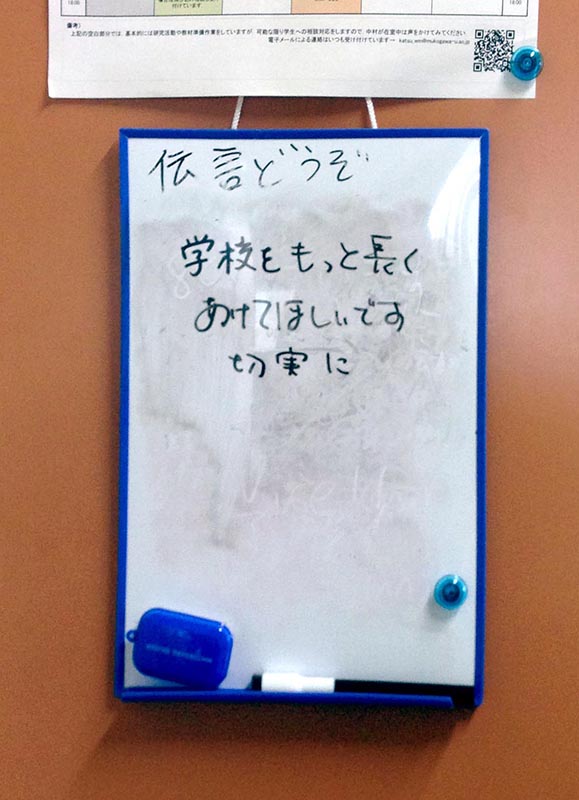 18:00
18:00
備考）
上記の空白部分では、基本的には研究活動や教材準備作業をしていますが、可能な限り学生への相談対応をしますので、中村が在室中は声をかけてみてください
電子メールによる連絡はいつも受け付けています→
伝言どうぞ
学校をもっと長く
あけてほしいです
切実に